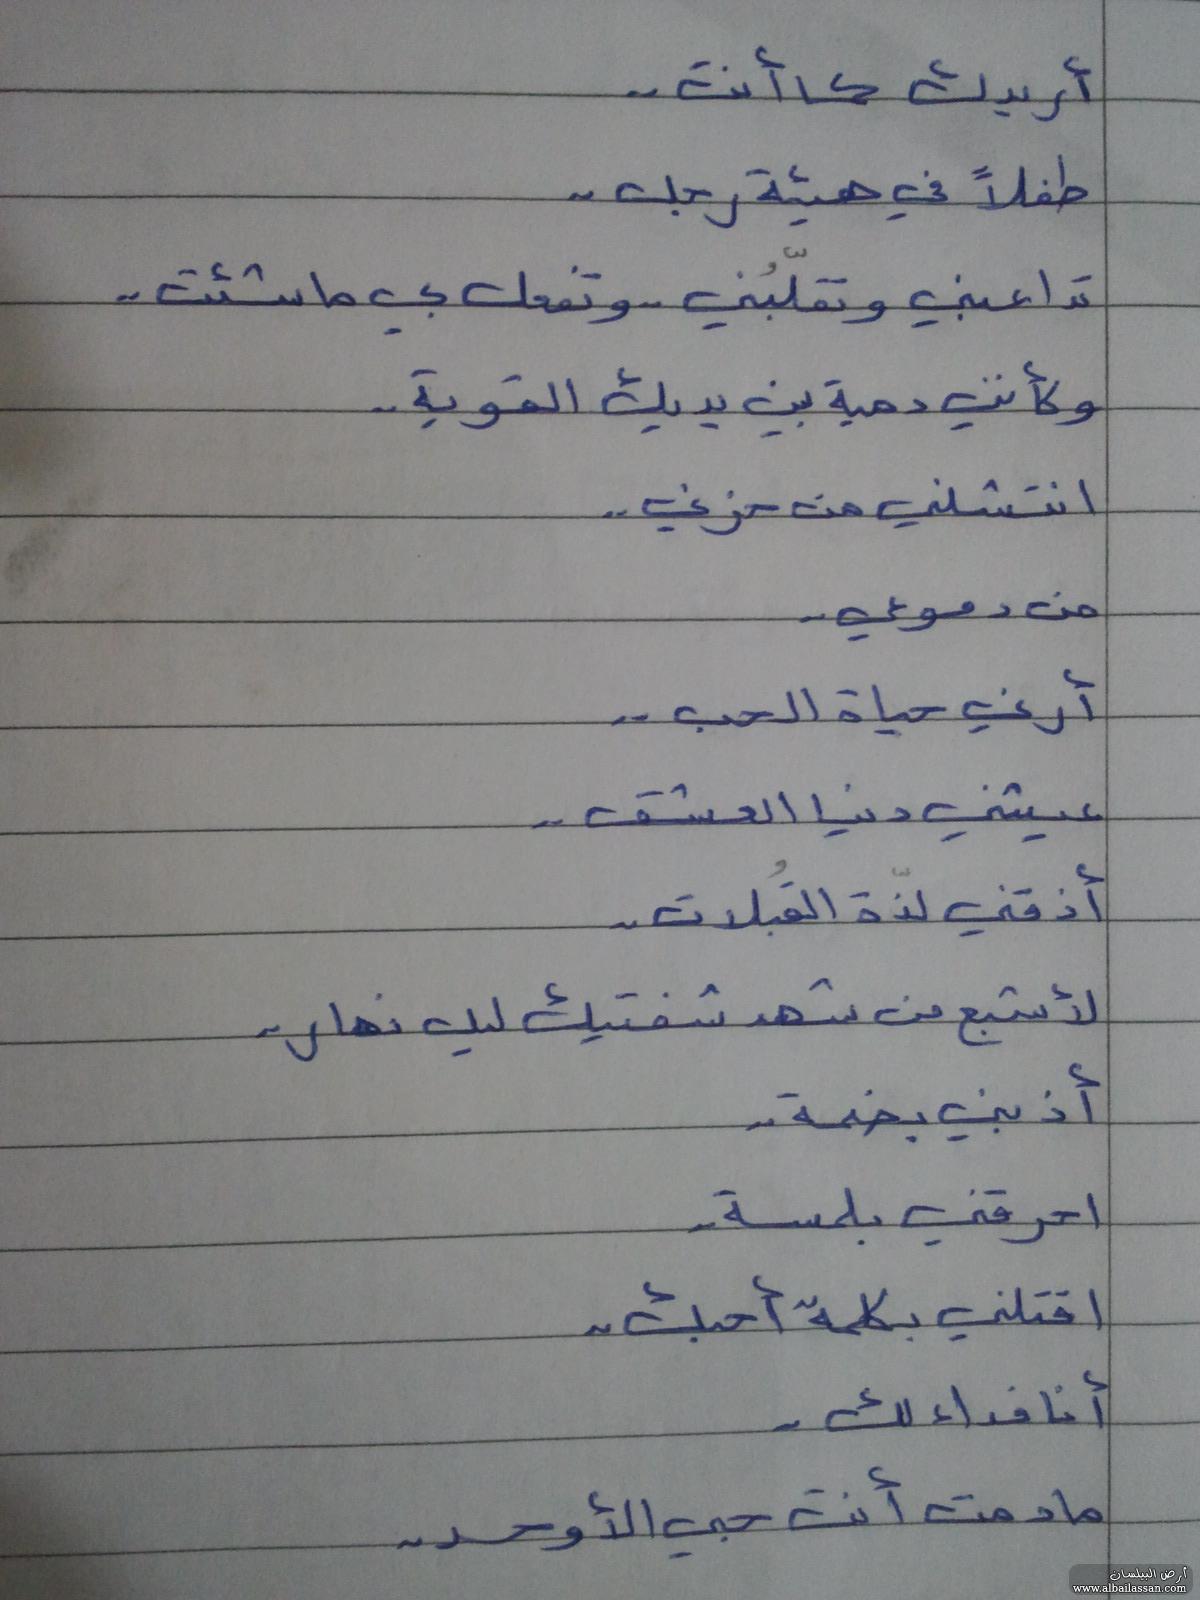 أريدك كما أنت ..
طفلاً في هيئة رجل ..
تداعبني وتقلّبُني .. وتفعل بي ماشئت ..
وكأنني دمية بين يديك القوية ..
انتشلني من حزني ..
من دموعي ..
أرني حياة الحب ..
عيشني دنيا العشق ..
أذقني لذّة القُبلات ..
لأشبع من شهد شفتيك ليل نهار ..
أذبني بضمة ..
احرقني بلمسة ..
اقتلني بكلمة أحبك ..
أنا فداء لك ..
مادمت أنت حبي الأوحد ..
أرض البيلسان
www.albailassan.com